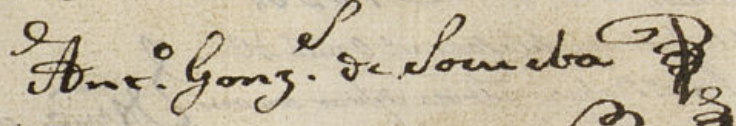 Antº. Gonz.s de Somoba